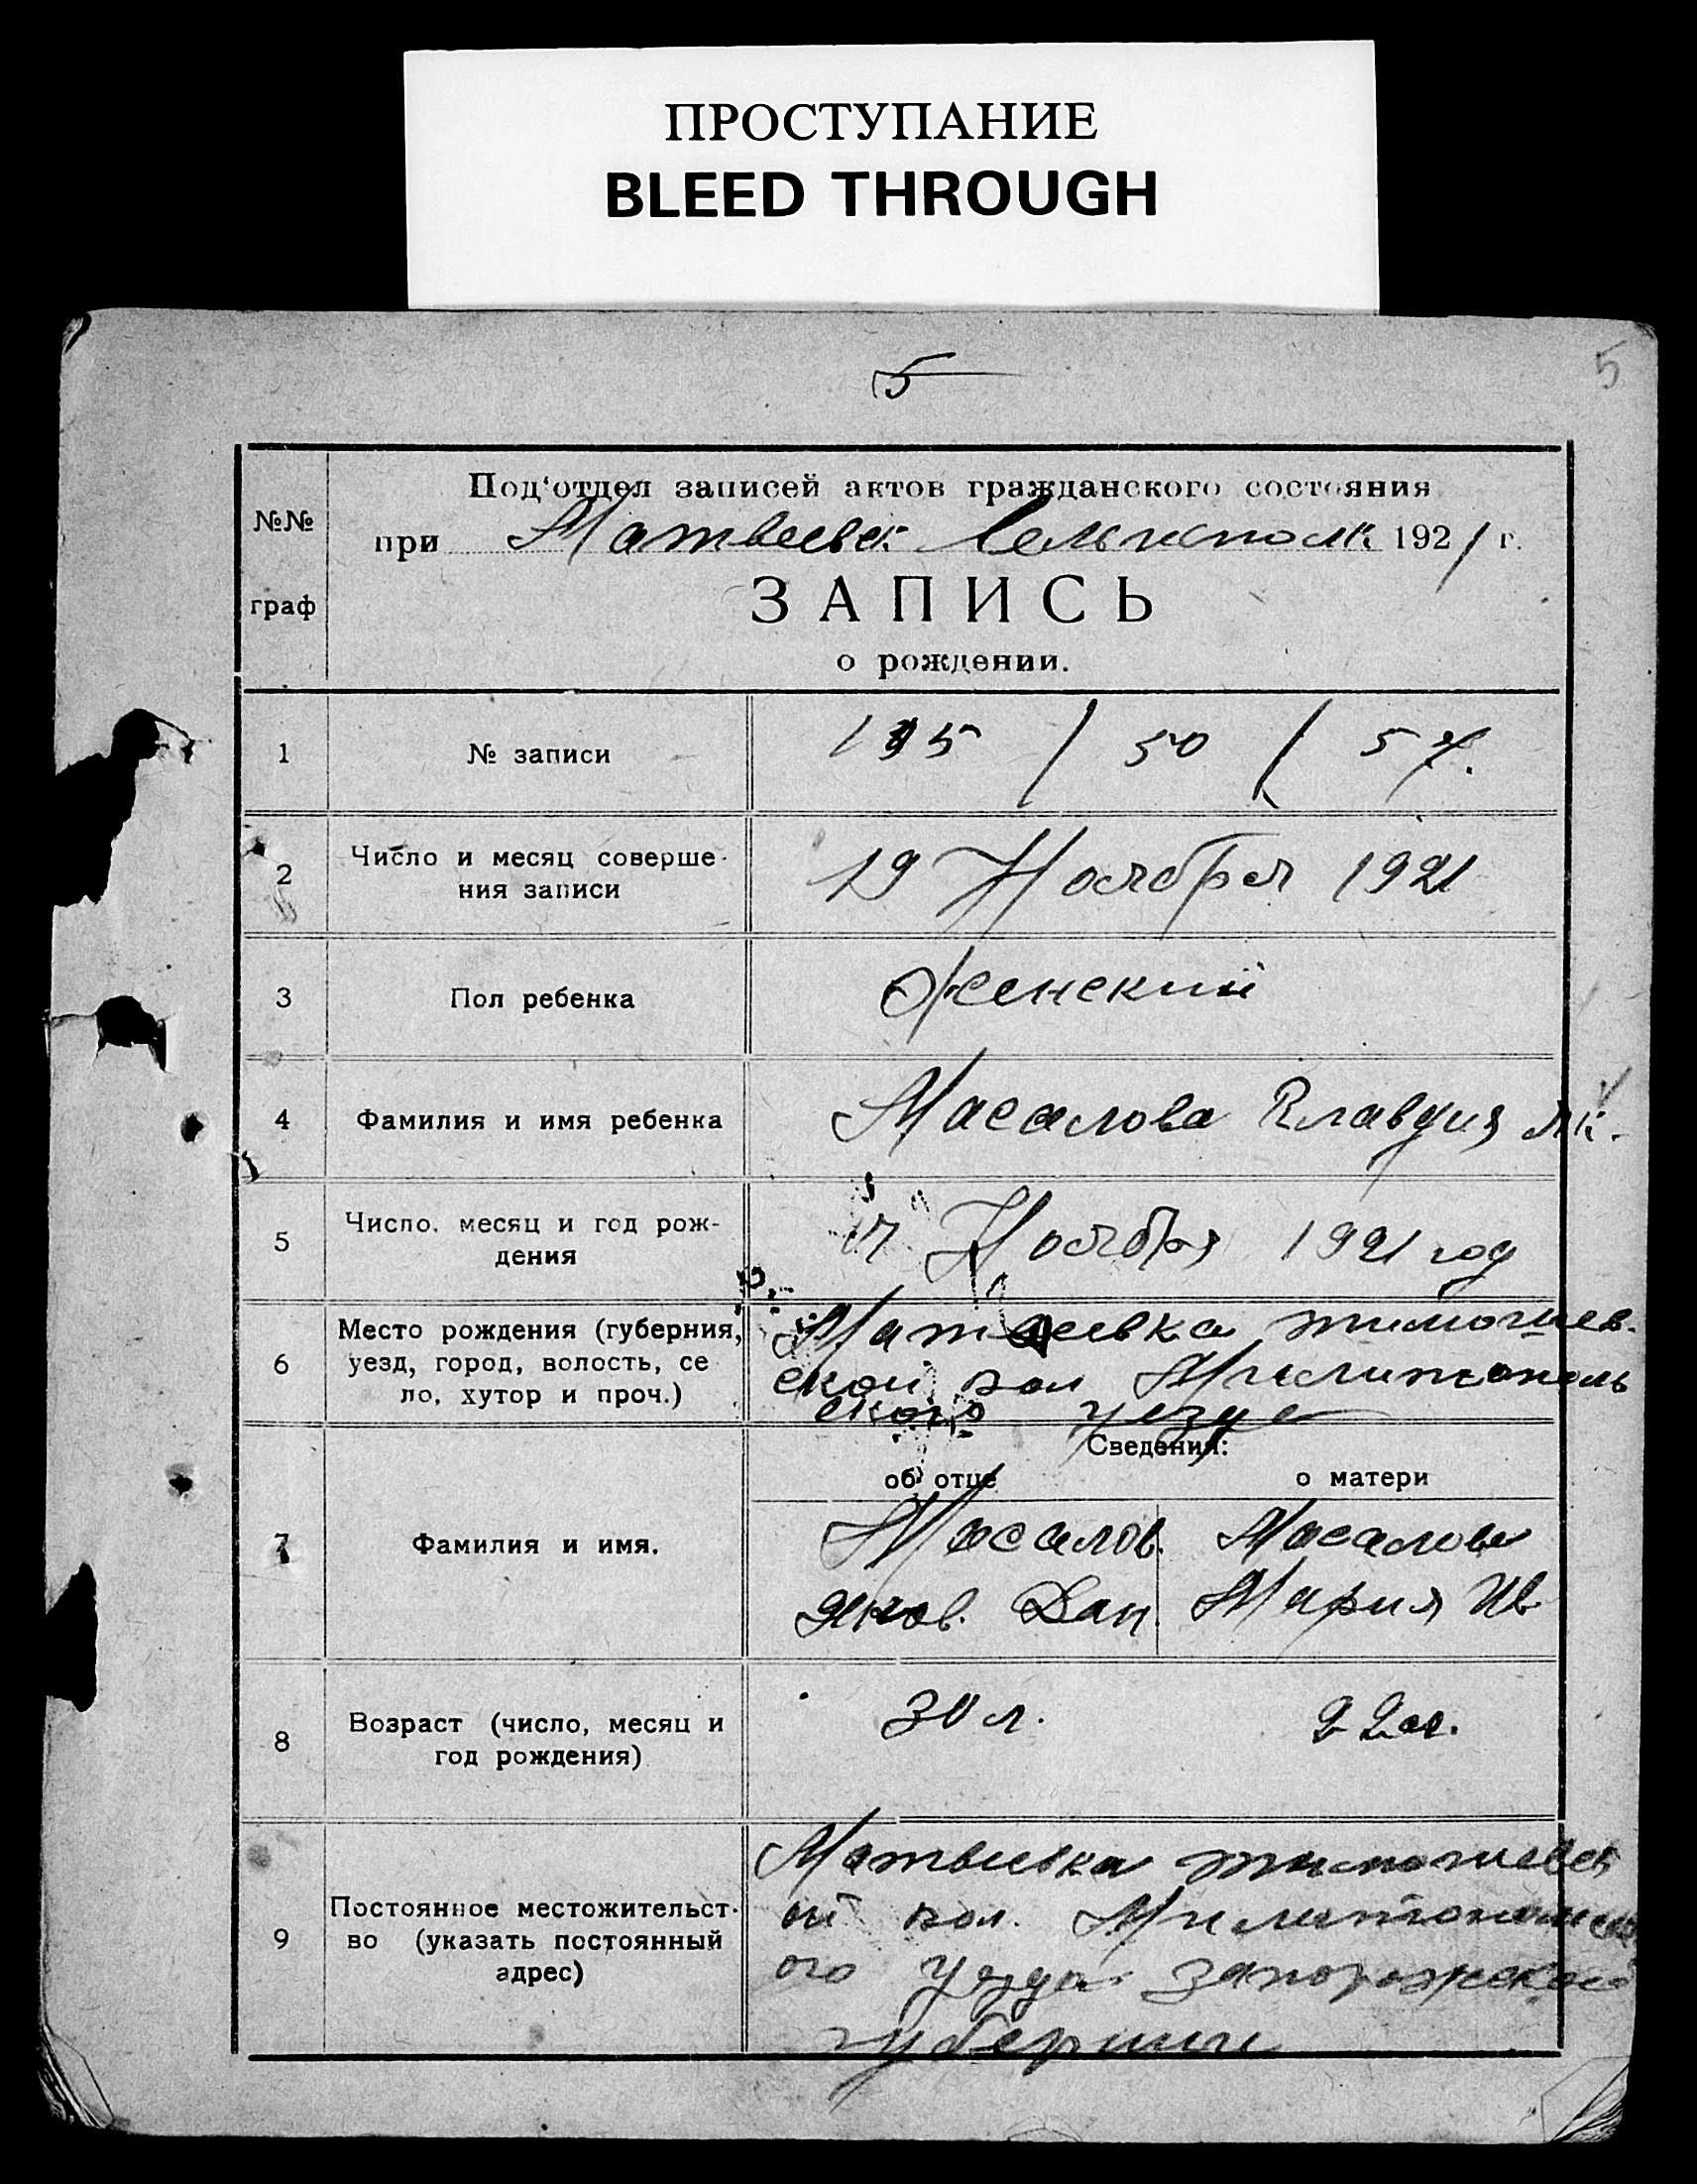 ПРОСТУПАНИЕ
BLEED THROUGH
5
5
Под‘отдел записей актов гражданского состояния
№№
при Матвеевск Сельисполк 1921 г.
ЗАПИСЬ
граф
о рождении.
1 № записи 195 / 50 / 57.
2 Число и месяц соверше-
ния записи
19 Ноября 1921
3 Пол ребенка Женский
4 Фамилия и имя ребенка Масалова Клавдия Як.
5 Число, месяц и год рож-
дения
17 Ноября 1921 год
6 Место рождения (губерния,
уезд, город, волость, се
ло, хутор и проч.)
Матвеевка тимошев-
ской вол Милитополь
ского уезда
Сведения:
об отце о матери
7 Фамилия и имя.
Масалов. Масалова
Яков. Дан. Мария Ив
8 Возраст (число, месяц и
год рождения)
30 л. 22 л.
9 Постоянное местожительст-
во (указать постоянный
адрес)
Матвеевка тимошевск
ой вол. Милитопольск
ого уезда Запорожской
губернии